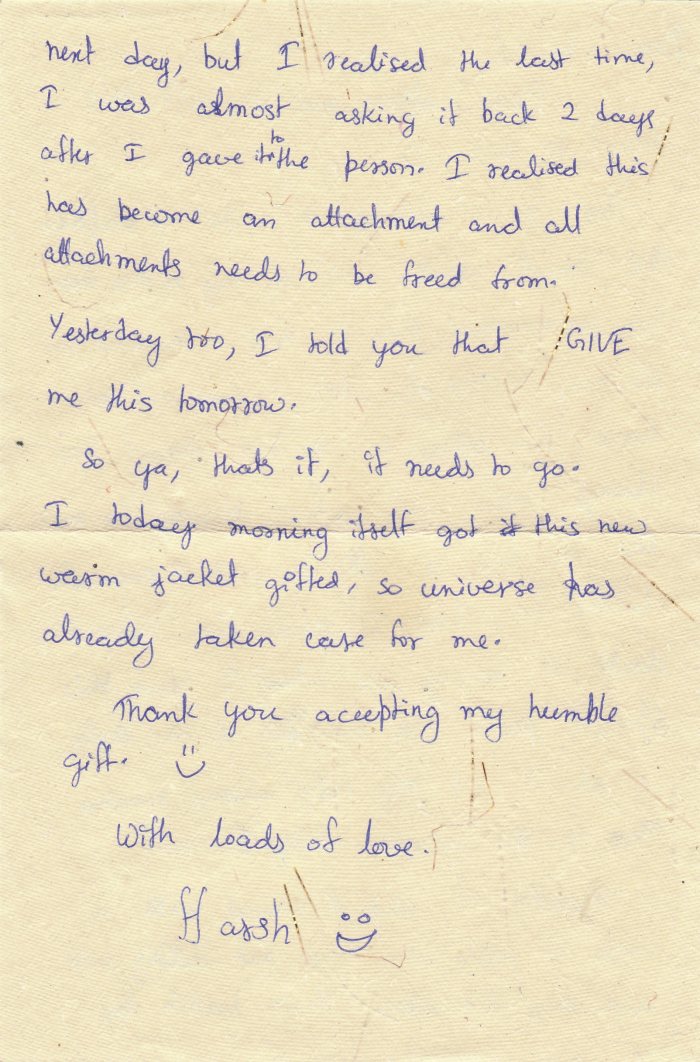 next day, but I realised the last time,
I was almost asking it back 2 days
after I gave it to the person. I realised this
has become an attachment and all
attachments needs to be freed from.
Yesterday too, I told you that GIVE
me this tomorrow.
So ya, thats it, it needs to go.
I today morning itself got it this new
warm jacket gifted, so universe has
already taken care for me.
Thank you accepting my humble
gift.
With loads of love.
Harsh